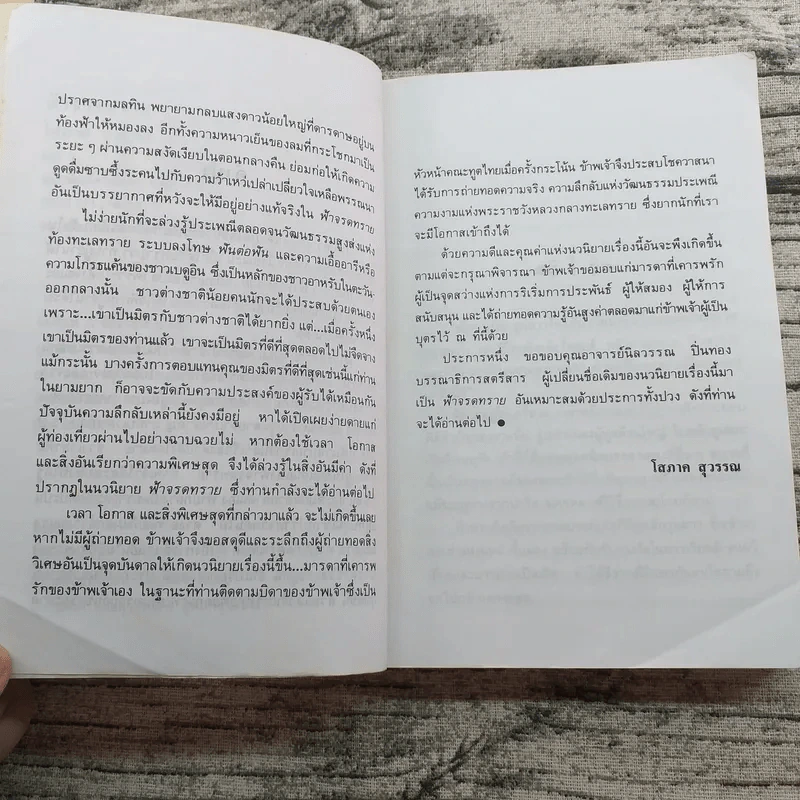 ปราศจากมลทิน พยายามกลบแสงดาวน้อยใหญ่ที่ดารดาษอยู่บน
ท้องฟ้าให้หมองลง อีกทั้งความหนาวเย็นของลมที่กระโชกมาเป็น
ระยะ ๆ ผ่านความสงัดเงียบในตอนกลางคืน ย่อมก่อให้เกิดความ
ดูดดื่มซาบซึ้งระคนไปกับความว้าเหว่เปล่าเปลี่ยวใจเหลือพรรณนา
อันเป็นบรรยากาศที่หวังจะให้มีอยู่อย่างแท้จริงใน ฟ้าจรดทราย
ไม่ง่ายนักที่จะล่วงรู้ประเพณีตลอดจนวัฒนธรรมสูงส่งแห่ง
ท้องทะเลทราย ระบบลงโทษ ฟันต่อฟัน และความเอื้ออารีหรือ
ความโกรธแค้นของชาวเบดูอิน ซึ่งเป็นหลักของชาวอาหรับในตะวัน-
ออกกลางนั้น ชาวต่างชาติน้อยคนนักจะได้ประสบด้วยตนเอง
เพราะ...เขาเป็นมิตรกับชาวต่างชาติได้ยากยิ่ง แต่...เมื่อครั้งหนึ่ง
เขาเป็นมิตรของท่านแล้ว เขาจะเป็นมิตรที่ดีที่สุดตลอดไปไม่จืดจาง
แม้กระนั้น บางครั้งการตอบแทนคุณของมิตรที่ดีที่สุดเช่นนี้แก่ท่าน
ในยามยาก ก็อาจจะขัดกับความประสงค์ของผู้รับได้เหมือนกัน
ปัจจุบันความลึกลับเหล่านี้ยังคงมีอยู่ หาได้เปิดเผยง่ายดายแก่
ผู้ท่องเที่ยวผ่านไปอย่างฉาบฉวยไม่ หากต้องใช้เวลา โอกาส
และสิ่งอันเรียกว่าความพิเศษสุด จึงได้ล่วงรู้ในสิ่งอันมีค่า ดังที่
ปรากฏในนวนิยาย ฟ้าจรดทราย ซึ่งท่านกำลังจะได้อ่านต่อไป
เวลา โอกาส และสิ่งพิเศษสุดที่กล่าวมาแล้ว จะไม่เกิดขึ้นเลย
หากไม่มีผู้ถ่ายทอด ข้าพเจ้าจึงขอสดุดีและระลึกถึงผู้ถ่ายทอดสิ่ง
วิเศษอันเป็นจุดบันดาลให้เกิดนวนิยายเรื่องนี้ขึ้น...มารดาที่เคารพ
รักของข้าพเจ้าเอง ในฐานะที่ท่านติดตามบิดาของข้าพเจ้าซึ่งเป็น
หัวหน้าคณะทูตไทยเมื่อครั้งกระโน้น ข้าพเจ้าจึงประสบโชควาสนา
ได้รับการถ่ายทอดความจริง ความลึกลับแห่งวัฒนธรรมประเพณี
ความงามแห่งพระราชวังหลวงกลางทะเลทราย ซึ่งยากนักที่เรา
จะมีโอกาสเข้าถึงได้
ด้วยความดีและคุณค่าแห่งนวนิยายเรื่องนี้อันจะพึงเกิดขึ้น
ตามแต่จะกรุณาพิจารณา ข้าพเจ้าขอมอบแก่มารดาที่เคารพรัก
ผู้เป็นจุดสว่างแห่งการริเริ่มการประพันธ์ ผู้ให้สมอง ผู้ให้การ
สนับสนุน และได้ถ่ายทอดความรู้อันสูงค่าตลอดมาแก่ข้าพเจ้าผู้เป็น
บุตรไว้ ณ ที่นี้ด้วย
ประการหนึ่ง ขอขอบคุณอาจารย์นิลวรรณ ปิ่นทอง
บรรณาธิการสตรีสาร ผู้เปลี่ยนชื่อเดิมของนวนิยายเรื่องนี้มา
เป็น ฟ้าจรดทราย อันเหมาะสมด้วยประการทั้งปวง ดังที่ท่าน
จะได้อ่านต่อไป ●
โสภาค สุวรรณ